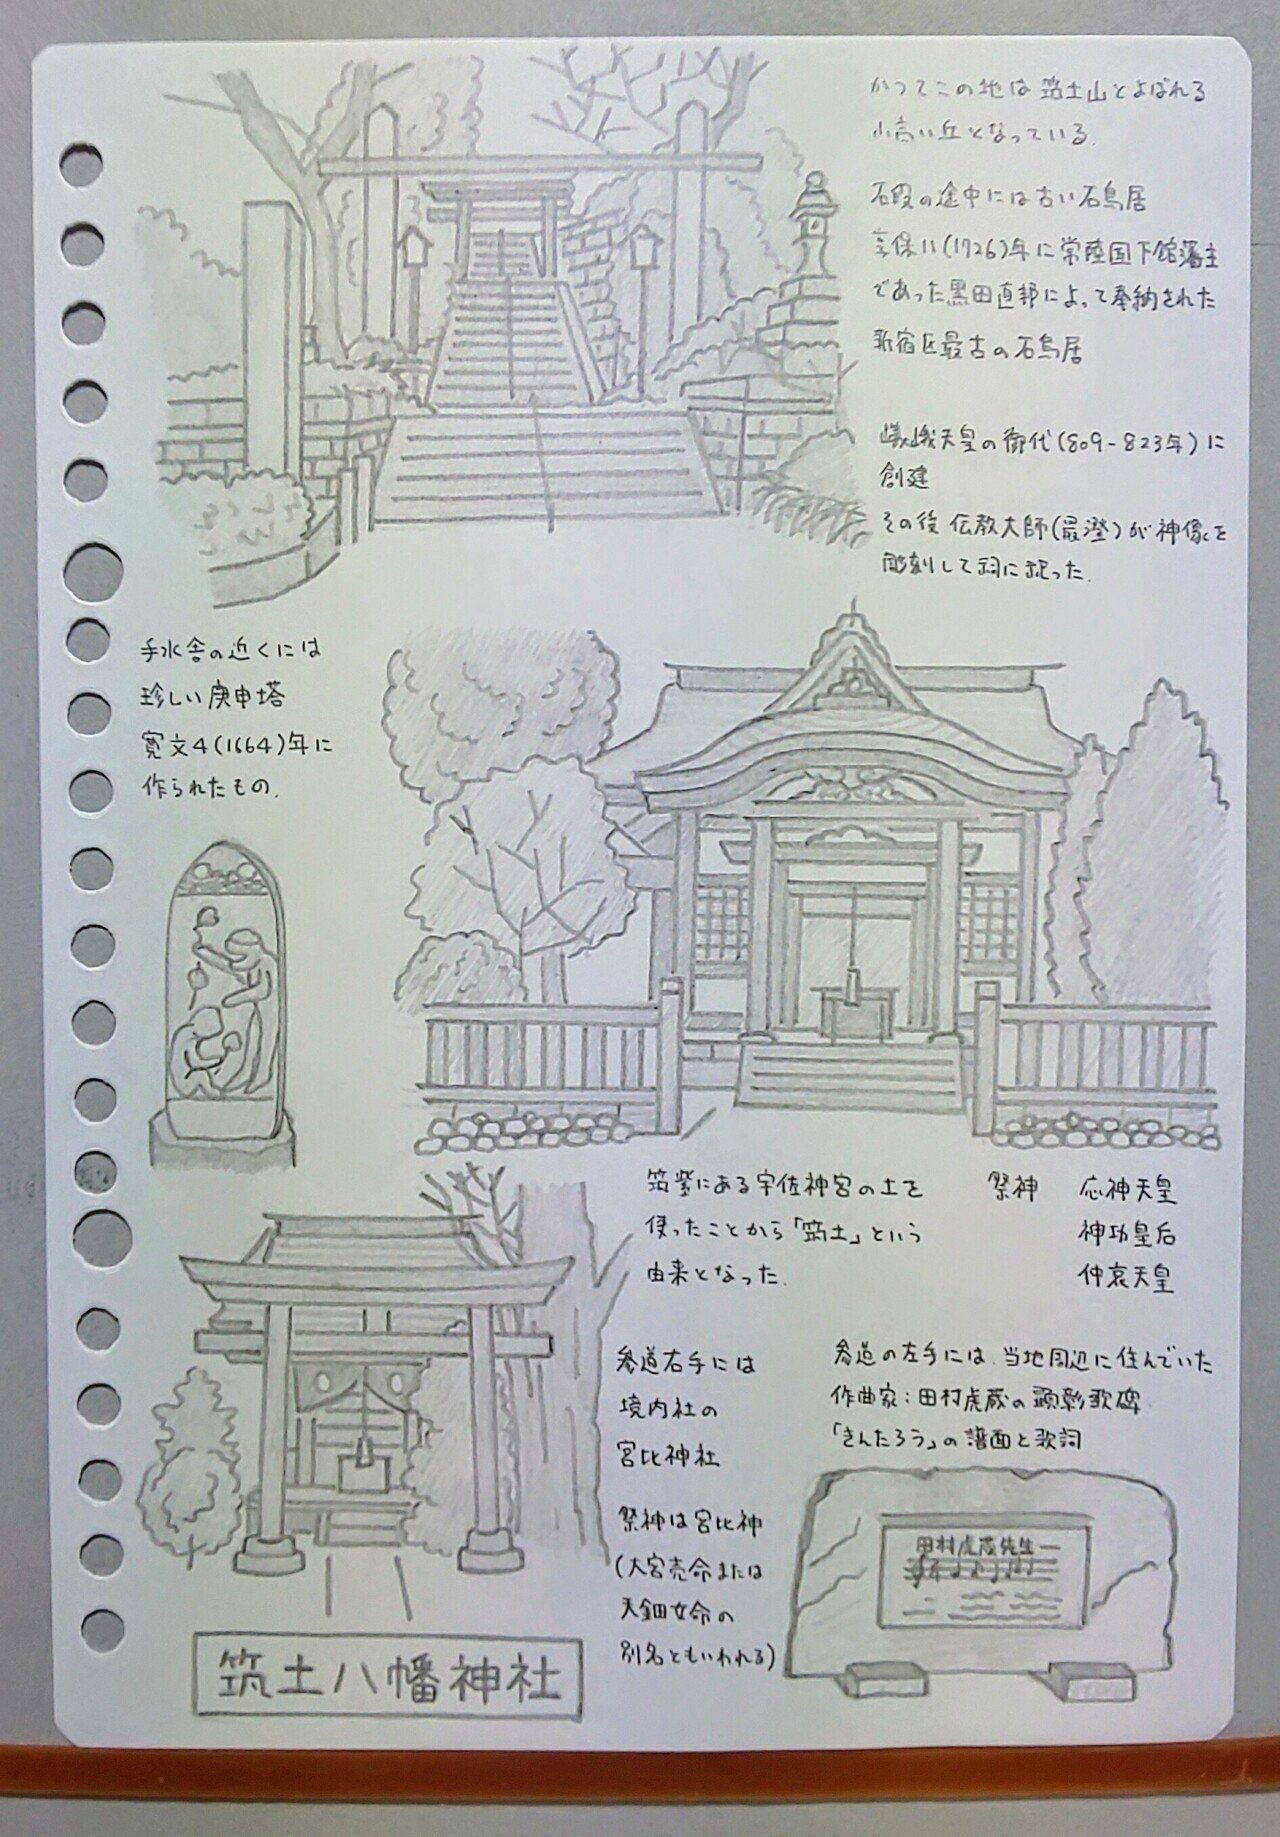 かつてこの地は筑土山とよばれる
小高い丘となっている.
石段の途中には古い石鳥居
享保11(1726)年に常陸国下館藩主
であった黒田直邦によって奉納された
新宿区最古の石鳥居
嵯峨天皇の御代(809-823年)に
創建
その後 伝教大師(最澄)が神像を
彫刻して祠に祀った.
手水舎の近くには
珍しい庚申塔
寛文4(1664)年に
作られたもの.
筑紫にある宇佐神宮の土を
使ったことから「筑土」という
由来となった.
祭神 応神天皇
神功皇后
仲哀天皇
参道右手には
境内社の
宮比神社
祭神は宮比神
(大宮売命または
天鈿女命の
別名ともいわれる)
参道の左手には、当地周辺に住んでいた
作曲家:田村虎蔵の顕彰歌碑
「きんたろう」の譜面と歌詞
田村虎蔵先生
筑土八幡神社